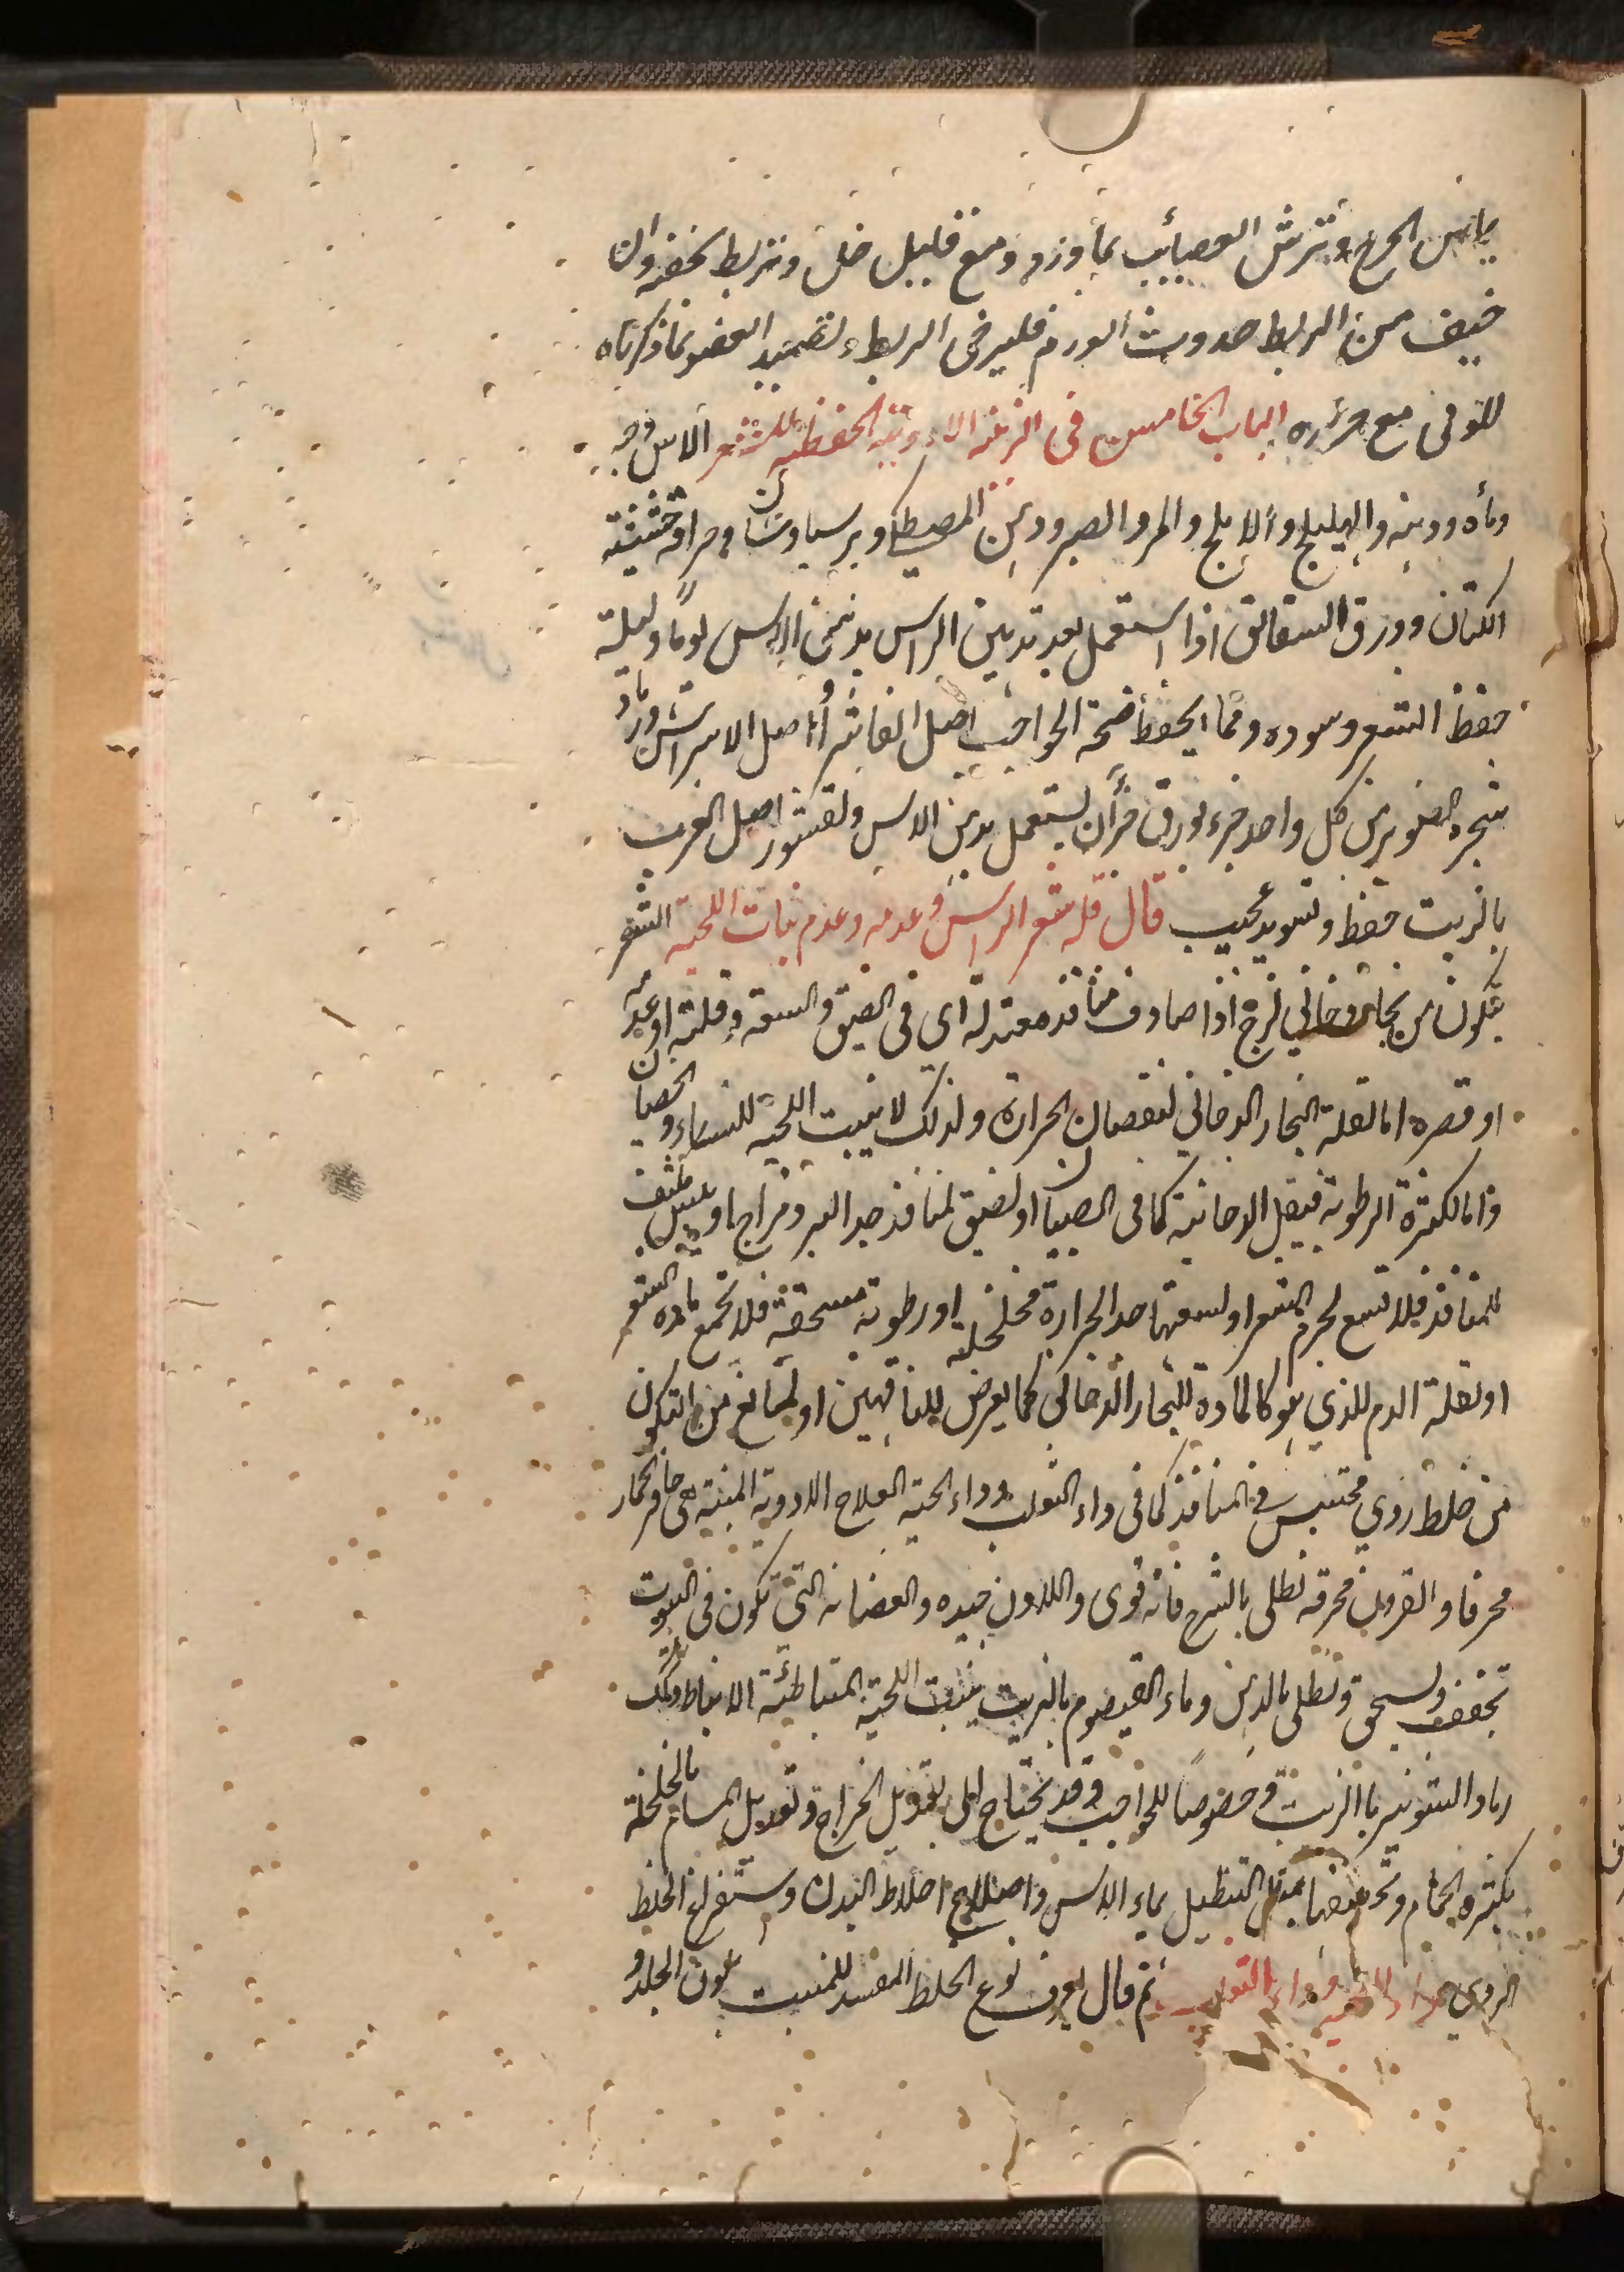 يابس الجرح وترش العصائب بماورد ومع قليل خل وتربط بخفة وان
خيف من الربط حدوث الورم فليرخى الربط ولتضميد العضو بما ذكرناه
للوثى مع حرزه الباب الخامس فى الزينة الادوية الحفظية للشعر الاس وحبه
وماه ودهنه والهليلج والاملج والمر والصبر ودهن المصطكى وبرسياوشان وحراقة حشيشة
الكتان وورق الشقائق اذا استعمل بعد تدهين الراس بدهن الاس يوما وليلة
حفظ الشعر وسوده ومما يحفظ صحة الحواجب اصل الفاشرا واصل الاسراش ورماد
شجرة الصنوبر من كل واحد جزء ورق جزآن يستعمل بدهن الاس ولقشور اصل الغرب
بالزيت حفظ وتسويد عجيب قال قلة شعر الراس وعدمه وعدم نبات اللحية الشعر
يتكون من بخار دخاني لزج اذا صادف منافذ معتدلة اى فى الضيق والسعة وقلته او عدمه
او قصره اما لقلة البخار الدخاني لنقصان الحرارة ولذلك لا ينبت اللحية للنساء والخصيان
واما لكثرة الرطوبة فيقل الدخانية كما فى الصبيان او لضيق المنافذ جدا لبرد مزاج او يبس مكثف
للمنافذ فلا تتسع لجرم الشعر او لسعتها جدا لحرارة مخلخلة او رطوبة مسحقة فلا تجمع مادة الشعر
او لقلة الدم للذي هو كالمادة للبخار الدخاني كما يعرض للناقهين او لمانع من التكون
من خلط ردي محتبس فى المنافذ كما فى داء الثعلب وداء الحية العلاج الادوية المنبتة هى حافر حمار
محرقا والقرون محرقة تطلى بالشيرج فانه قوى واللادن جيده والعضاية التى تكون فى البيوت
تجفف وتسحق وتطلى بالدهن وماء القيصوم بالزيت ينبت اللحية المتباطئة الانبات وكذلك
رماد الشونيز بالزيت خصوصا للحواجب وقد يحتاج الى تعديل المزاج وتعديل المسام بالخلخلة
بكثرة الحمام وتجميعها بمثل التنطيل بماء الاس واصلاح اخلاط البدن واستفراغ الخلط
الردي داء الحية وداء الثعلب ثم قال يعرف نوع الخلط المفسد للمنبت بلون الجلد و